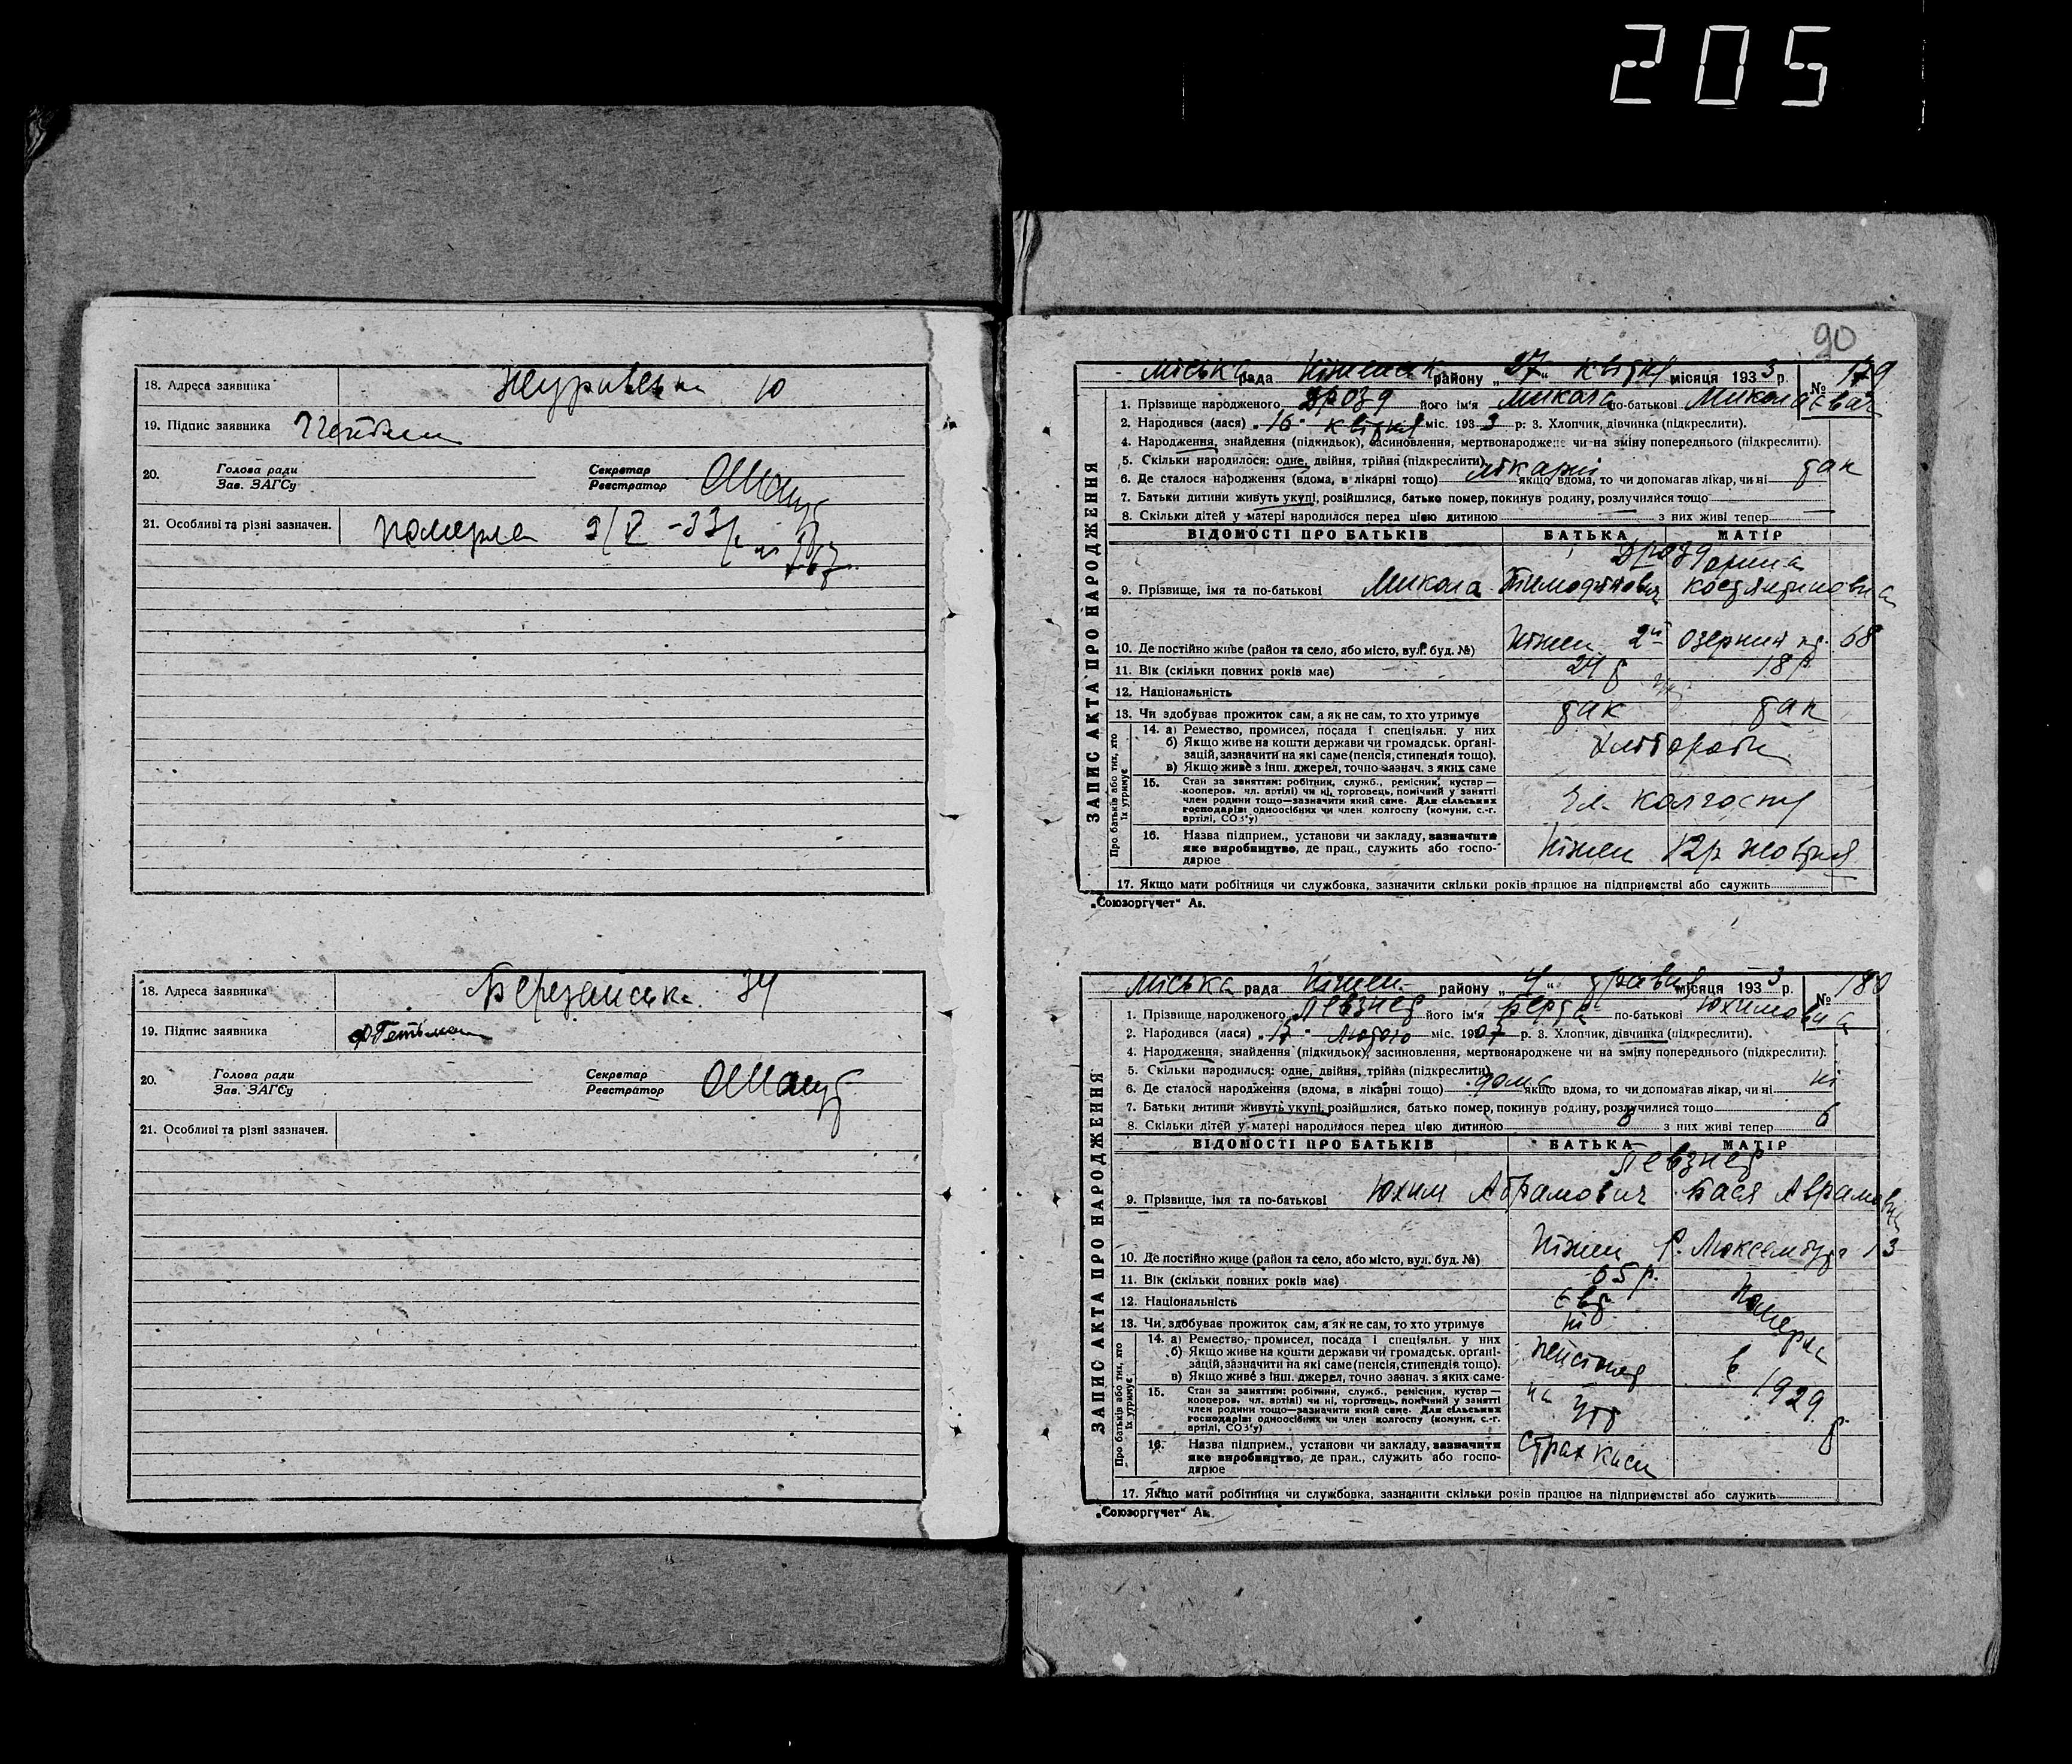 205
18. Адреса заявника Журавська 10
19. Підпис заявника
20. Голова ради Секретар
Зав. ЗАГСу Реєстратор
21. Особливі та різні зазначен. померла 9/V -33р
18. Адреса заявника Березанська 34
19. Підпис заявника ФГетьман
20. Голова ради Секретар
Зав. ЗАГСу Реєстратор
21. Особливі та різні зазначен.
90
ЗАПИС АКТА ПРО НАРОДЖЕННЯ
міська рада Ніженськ району „27“ квітня місяця 1933 р. № 179
1. Прізвище народженого Дрозд його ім'я Микола по-батькові Миколаєвич
2. Народився (лася) „16“ квітня міс. 1933 р. 3. Хлопчик, дівчинка (підкреслити).
4. Народження, знайдення (підкидьок), засиновлення, мертвонароджене чи на зміну попереднього (підкреслити).
5. Скільки народилося: одне, двійня, трійня (підкреслити)
6. Де сталося народження (вдома, в лікарні тощо) лікарні якщо вдома, то чи допомагав лікар, чи ні так
7. Батьки дитини живуть укупі, розійшлися, батько помер, покинув родину, розлучилися тощо
8. Скільки дітей у матері народилося перед цією дитиною — з них живі тепер —
ВІДОМОСТІ ПРО БАТЬКІВ БАТЬКА МАТІР
Дрозд
9. Прізвище, імя та по-батькові Микола Тимофійович Костянтиновна
10. Де постійно живе (район та село, або місто, вул. буд. №) Ніжен 2й Озерний 68
11. Вік (скільки повних років має) 24 р 18 р.
12. Національність
13. Чи здобуває прожиток сам, а як не сам, то хто утримує так так
Про батьків або тих, хто їх утримує
14. а) Ремество, промисел, посада і спеціяльн. у них
б) Якщо живе на кошти держави чи громадськ. органі-
зацій, зазначити на які саме (пенсія, стипендія тощо).
в) Якщо живе з інш. джерел, точно зазнач. з яких саме
Хлібороби
15. Стан за заняттям: робітник, служб., ремісник, кустар—
кооперов. чл. артілі) чи ні, торговець, помічний у занятті
член родини тощо—зазначити який саме. Для сільських
господарів: одноосібних чи член колгоспу (комуни, с.-г.
артілі, СОЗ'у)
чл. колгоспу
16. Назва підприєм., установи чи закладу, зазначити
яке виробництво, де прац., служить або госпо-
дарює
Ніжен 12р жовтня
17. Якщо мати робітниця чи службовка, зазначити скільки років працює на підприємстві або служить
„Союзоргучет“
ЗАПИС АКТА ПРО НАРОДЖЕННЯ
міська рада Ніжен. району „4“ травня місяця 1933 р. № 180
1. Прізвище народженого Левзнер його ім'я Берта по-батькові Юхимовна
2. Народився (лася) „13“ Лютого міс. 1907 р. 3. Хлопчик, дівчинка (підкреслити).
4. Народження, знайдення (підкидьок), засиновлення, мертвонароджене чи на зміну попереднього (підкреслити).
5. Скільки народилося: одне, двійня, трійня (підкреслити)
6. Де сталося народження (вдома, в лікарні тощо) дома якщо вдома, то чи допомагав лікар, чи ні ні
7. Батьки дитини живуть укупі, розійшлися, батько помер, покинув родину, розлучилися тощо
8. Скільки дітей у матері народилося перед цією дитиною 6 з них живі тепер 6
ВІДОМОСТІ ПРО БАТЬКІВ БАТЬКА МАТІР
Левзнер
9. Прізвище, імя та по-батькові Юхим Абрамович Бася Аврамовна
10. Де постійно живе (район та село, або місто, вул. буд. №) Ніжен Р. Люксембург 13
11. Вік (скільки повних років має) 65 р.
12. Національність євр
13. Чи здобуває прожиток сам, а як не сам, то хто утримує ні
Померла в 1929 р
Про батьків або тих, хто їх утримує
14. а) Ремество, промисел, посада і спеціяльн. у них
б) Якщо живе на кошти держави чи громадськ. органі-
зацій, зазначити на які саме (пенсія, стипендія тощо).
в) Якщо живе з інш. джерел, точно зазнач. з яких саме
пенсіонер
15. Стан за заняттям: робітник, служб., ремісник, кустар—
кооперов. чл. артілі) чи ні, торговець, помічний у занятті
член родини тощо—зазначити який саме. Для сільських
господарів: одноосібних чи член колгоспу (комуни, с.-г.
артілі, СОЗ'у)
16. Назва підприєм., установи чи закладу, зазначити
яке виробництво, де прац., служить або госпо-
дарює
страх каси
17. Якщо мати робітниця чи службовка, зазначити скільки років працює на підприємстві або служить
„Союзоргучет“